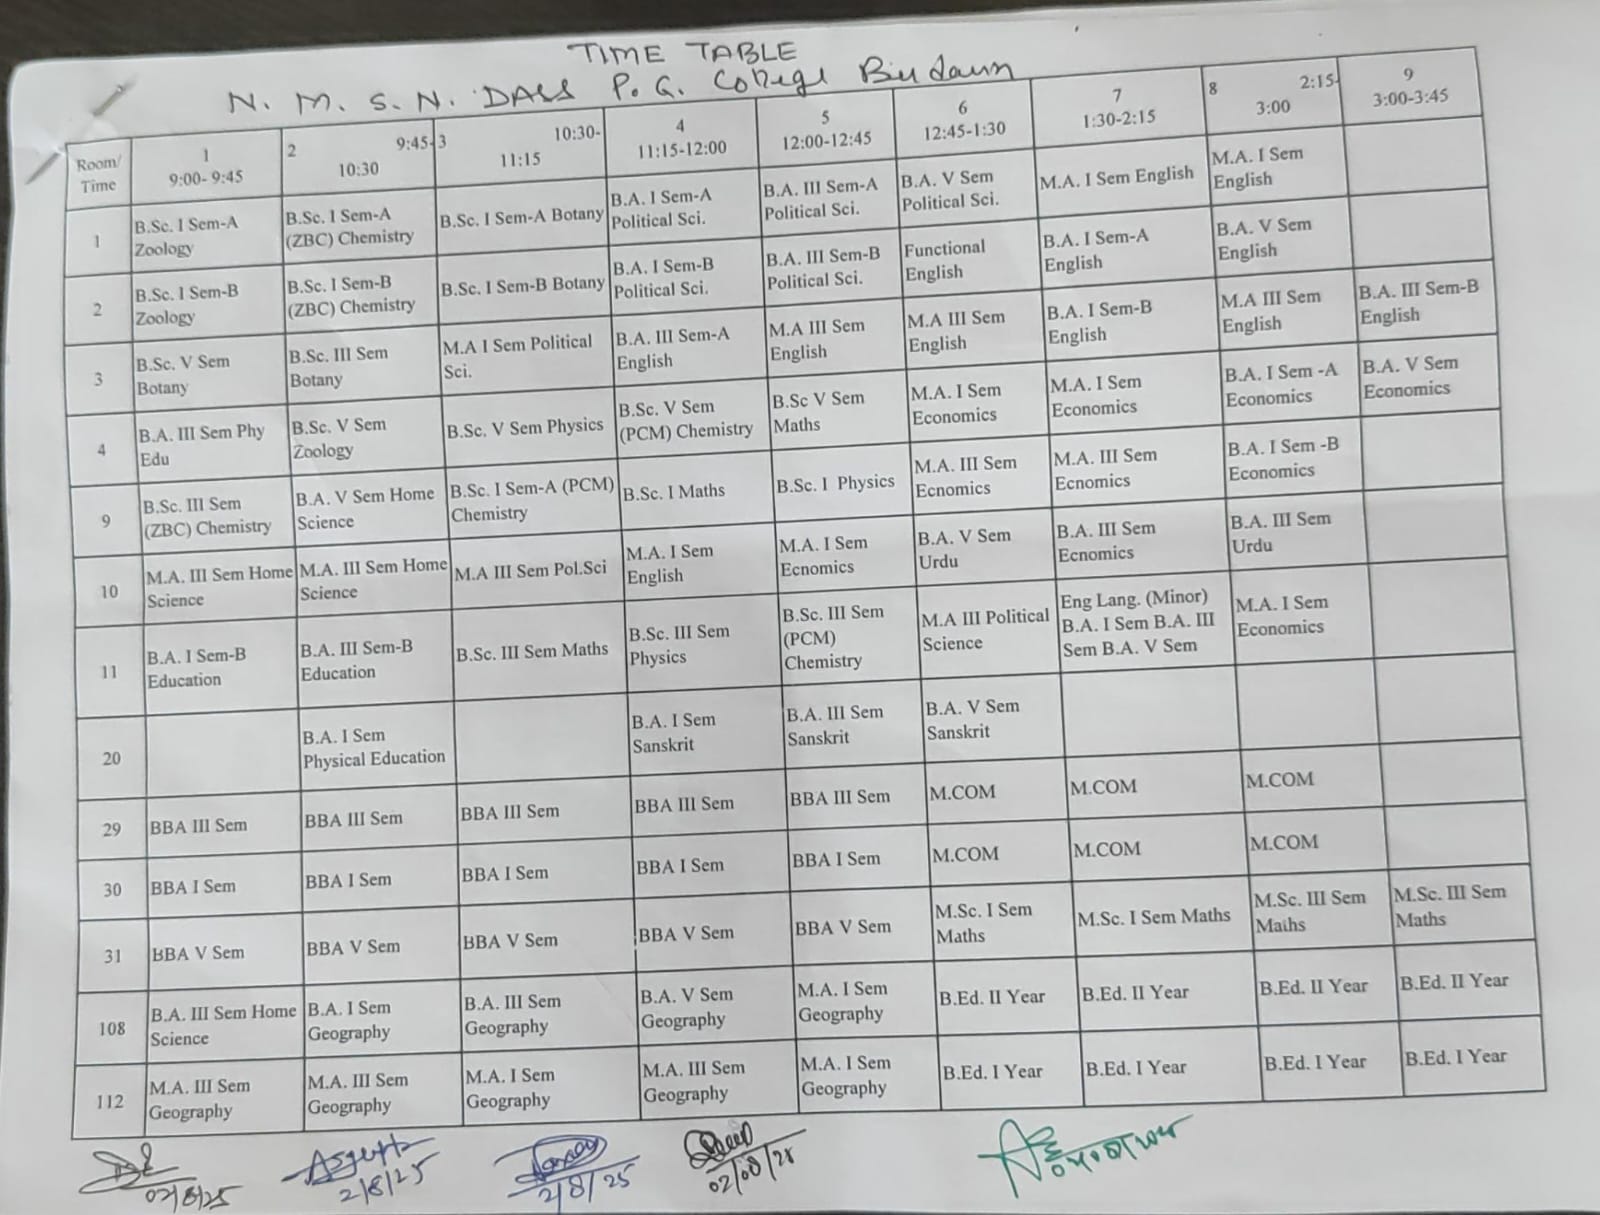 TIME TABLE
N. M. S. N. DASS P. G. College Budaun
Room/ Time | 1 9:00- 9:45 | 2 9:45- 10:30 | 3 10:30- 11:15 | 4 11:15-12:00 | 5 12:00-12:45 | 6 12:45-1:30 | 7 1:30-2:15 | 8 2:15- 3:00 | 9 3:00-3:45
1 | B.Sc. I Sem-A Zoology | B.Sc. I Sem-A (ZBC) Chemistry | B.Sc. I Sem-A Botany | B.A. I Sem-A Political Sci. | B.A. III Sem-A Political Sci. | B.A. V Sem Political Sci. | M.A. I Sem English | M.A. I Sem English |
2 | B.Sc. I Sem-B Zoology | B.Sc. I Sem-B (ZBC) Chemistry | B.Sc. I Sem-B Botany | B.A. I Sem-B Political Sci. | B.A. III Sem-B Political Sci. | Functional English | B.A. I Sem-A English | B.A. V Sem English |
3 | B.Sc. V Sem Botany | B.Sc. III Sem Botany | M.A I Sem Political Sci. | B.A. III Sem-A English | M.A III Sem English | M.A III Sem English | B.A. I Sem-B English | M.A III Sem English | B.A. III Sem-B English
4 | B.A. III Sem Phy Edu | B.Sc. V Sem Zoology | B.Sc. V Sem Physics | B.Sc. V Sem (PCM) Chemistry | B.Sc V Sem Maths | M.A. I Sem Economics | M.A. I Sem Economics | B.A. I Sem -A Economics | B.A. V Sem Economics
9 | B.Sc. III Sem (ZBC) Chemistry | B.A. V Sem Home Science | B.Sc. I Sem-A (PCM) Chemistry | B.Sc. I Maths | B.Sc. I Physics | M.A. III Sem Ecnomics | M.A. III Sem Ecnomics | B.A. I Sem -B Economics |
10 | M.A. III Sem Home Science | M.A. III Sem Home Science | M.A III Sem Pol.Sci | M.A. I Sem English | M.A. I Sem Ecnomics | B.A. V Sem Urdu | B.A. III Sem Ecnomics | B.A. III Sem Urdu |
11 | B.A. I Sem-B Education | B.A. III Sem-B Education | B.Sc. III Sem Maths | B.Sc. III Sem Physics | B.Sc. III Sem (PCM) Chemistry | M.A III Political Science | Eng Lang. (Minor) B.A. I Sem B.A. III Sem B.A. V Sem | M.A. I Sem Economics |
20 | | B.A. I Sem Physical Education | | B.A. I Sem Sanskrit | B.A. III Sem Sanskrit | B.A. V Sem Sanskrit | | |
29 | BBA III Sem | BBA III Sem | BBA III Sem | BBA III Sem | BBA III Sem | M.COM | M.COM | M.COM |
30 | BBA I Sem | BBA I Sem | BBA I Sem | BBA I Sem | BBA I Sem | M.COM | M.COM | M.COM |
31 | BBA V Sem | BBA V Sem | BBA V Sem | BBA V Sem | BBA V Sem | M.Sc. I Sem Maths | M.Sc. I Sem Maths | M.Sc. III Sem Maths | M.Sc. III Sem Maths
108 | B.A. III Sem Home Science | B.A. I Sem Geography | B.A. III Sem Geography | B.A. V Sem Geography | M.A. I Sem Geography | B.Ed. II Year | B.Ed. II Year | B.Ed. II Year | B.Ed. II Year
112 | M.A. III Sem Geography | M.A. III Sem Geography | M.A. I Sem Geography | M.A. III Sem Geography | M.A. I Sem Geography | B.Ed. I Year | B.Ed. I Year | B.Ed. I Year | B.Ed. I Year
02/8/25 2/8/25 2/8/25 02/08/25